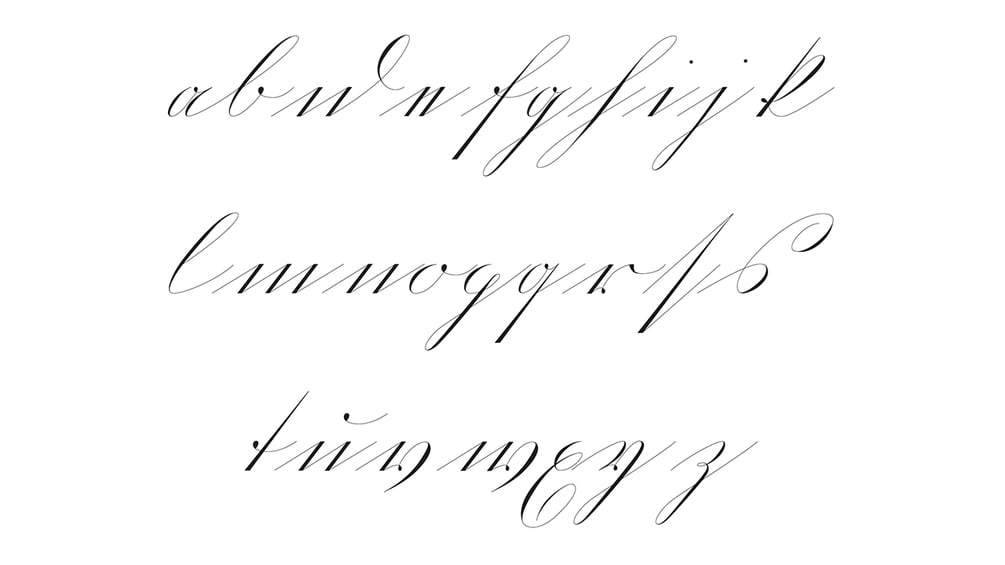 a b c d e f g h i j k
l m n o p q r ſ s
t u v w x y z